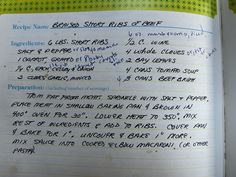 Recipe Name: BRAISED SHORT RIBS OF BEEF
Ingredients: 6 LBS. SHORT RIBS
1/2 C. WINE
SALT & PEPPER
4 WHOLE CLOVES
1 CARROT, GRATED
2 BAY LEAVES
ONION
4 CANS TOMATO SOUP
2 CLOVES GARLIC, MINCED
3 CANS BEEF BROTH
Preparation: (including number of servings)
TRIM FAT FROM MEAT. SPRINKLE WITH SALT & PEPPER,
PLACE MEAT IN SHALLOW BAKING PAN & BROWN IN
400° OVEN FOR 30". LOWER HEAT TO 350°, MIX
REST OF INGREDIENTS & ADD TO RIBS. COVER PAN
& BAKE FOR 1°. UNCOVER & BAKE 1° MORE.
MIX SAUCE INTO COOKED ELBOW MACARONI, (OR OTHER
PASTA).